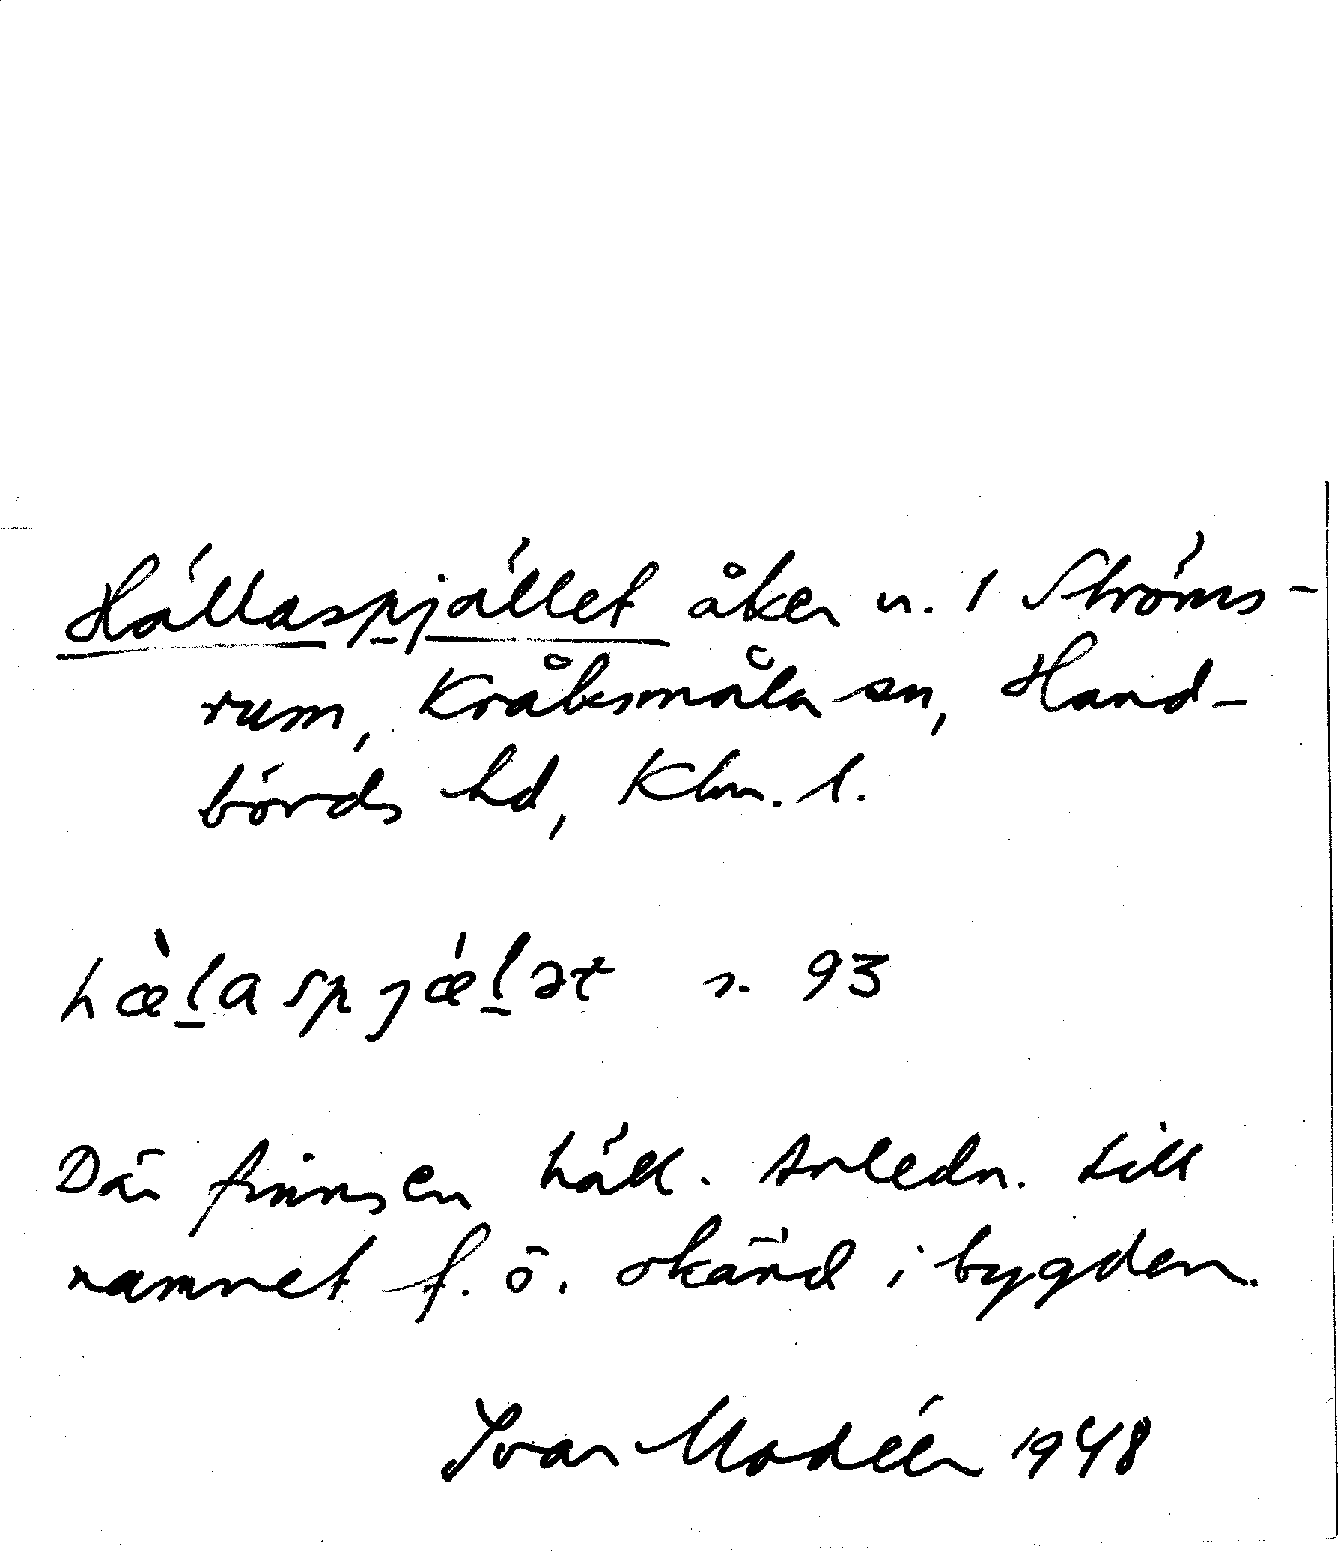 Hällaspjället åker n. 1 Ströms-
rum, Kråksmåla sn, Hand-
börds hd, Klm. l.
hæ̀l̠aspjǽl̠ət s. 93
Där finns en häll. Anledn. till
namnet f. ö. okänd i bygden.
Ivar Modéer 1948